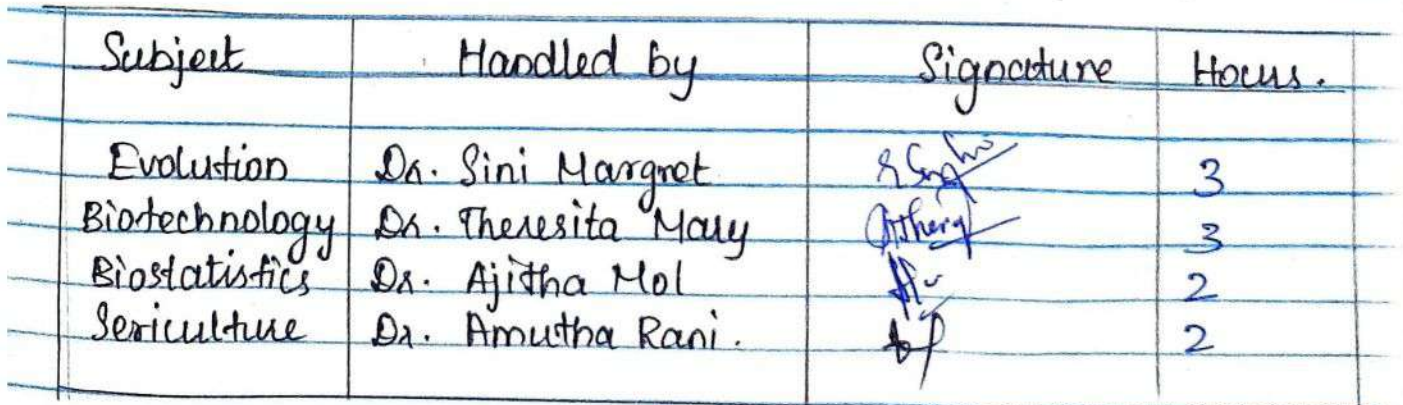 Subject Handled by Signature Hours.
Evolution Dr. Sini Margret 3
Biotechnology Dr. Theresita Mary 3
Biostatistics Dr. Ajitha Mol 2
Sericulture Dr. Amutha Rani. 2